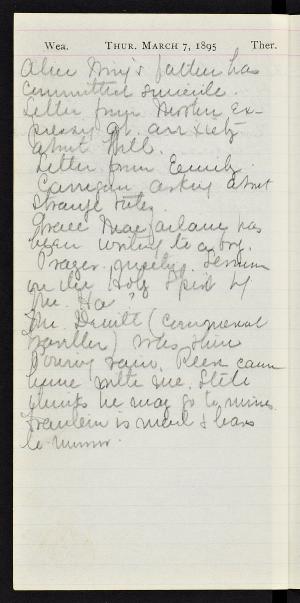 Wea. THUR. MARCH 7, 1895 Ther.
Alice King's father has
committed suicide.
Letter from Mother ex-
pressing gt. anxiety
about Will.
Letter from Emily
Carrigan asking about
strange rates.
Grace MacFarlane has
been writing to a boy.
Prayer meeting. Sermon
on the Holy Spirit by
Mr. Ha
Mr. Dewitt (commercial
traveller) was here
Pouring rain. Reen came
home with me. Still
thinks he may go to mines.
Fraulein is mad & leaves